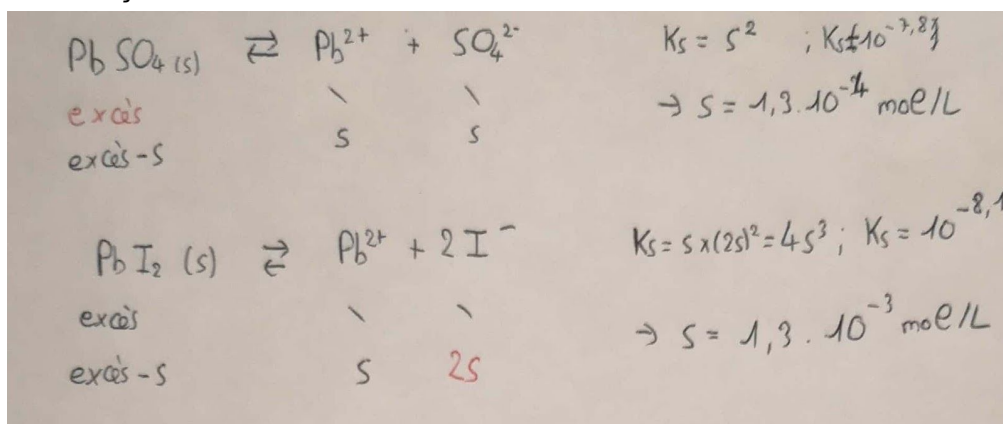 PbSO₄ (s) ⇄ Pb²⁺ + SO₄²⁻ Ks = s² ; Ks=10⁻⁷,⁸
excès \ \ → s = 1,3.10⁻⁴ mol/L
excès-s s s
PbI₂ (s) ⇄ Pb²⁺ + 2 I⁻ Ks = s x (2s)² = 4s³ ; Ks = 10⁻⁸,¹
excès \ \ → s = 1,3 . 10⁻³ mol/L
excès-s s 2s